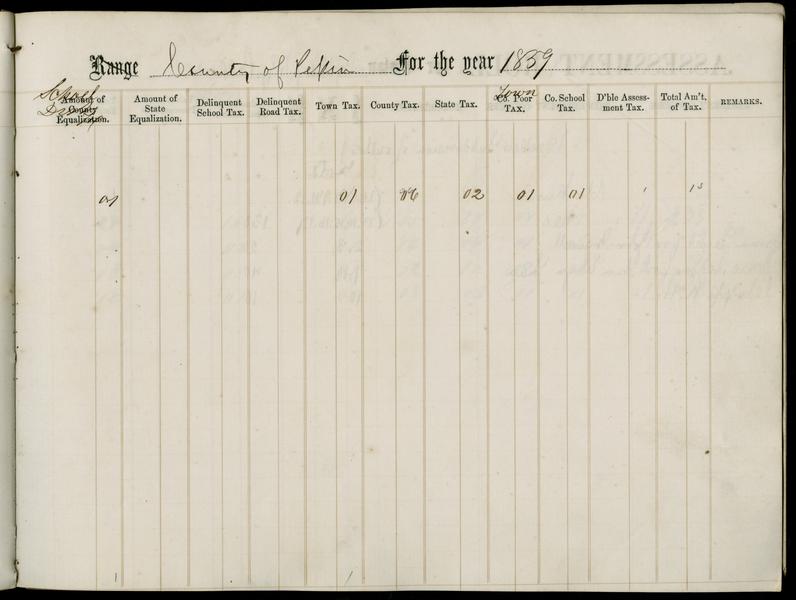 Range County of Pepin For the year 1859
School
Amount of County Equalization.
Amount of State Equalization.
Delinquent School Tax.
Delinquent Road Tax.
Town Tax.
County Tax.
State Tax.
Town
Co. Poor TAX.
Co. School Tax.
D'ble Assessment Tax.
Total Am't, of Tax.
REMARKS.
01 06 02 01 01